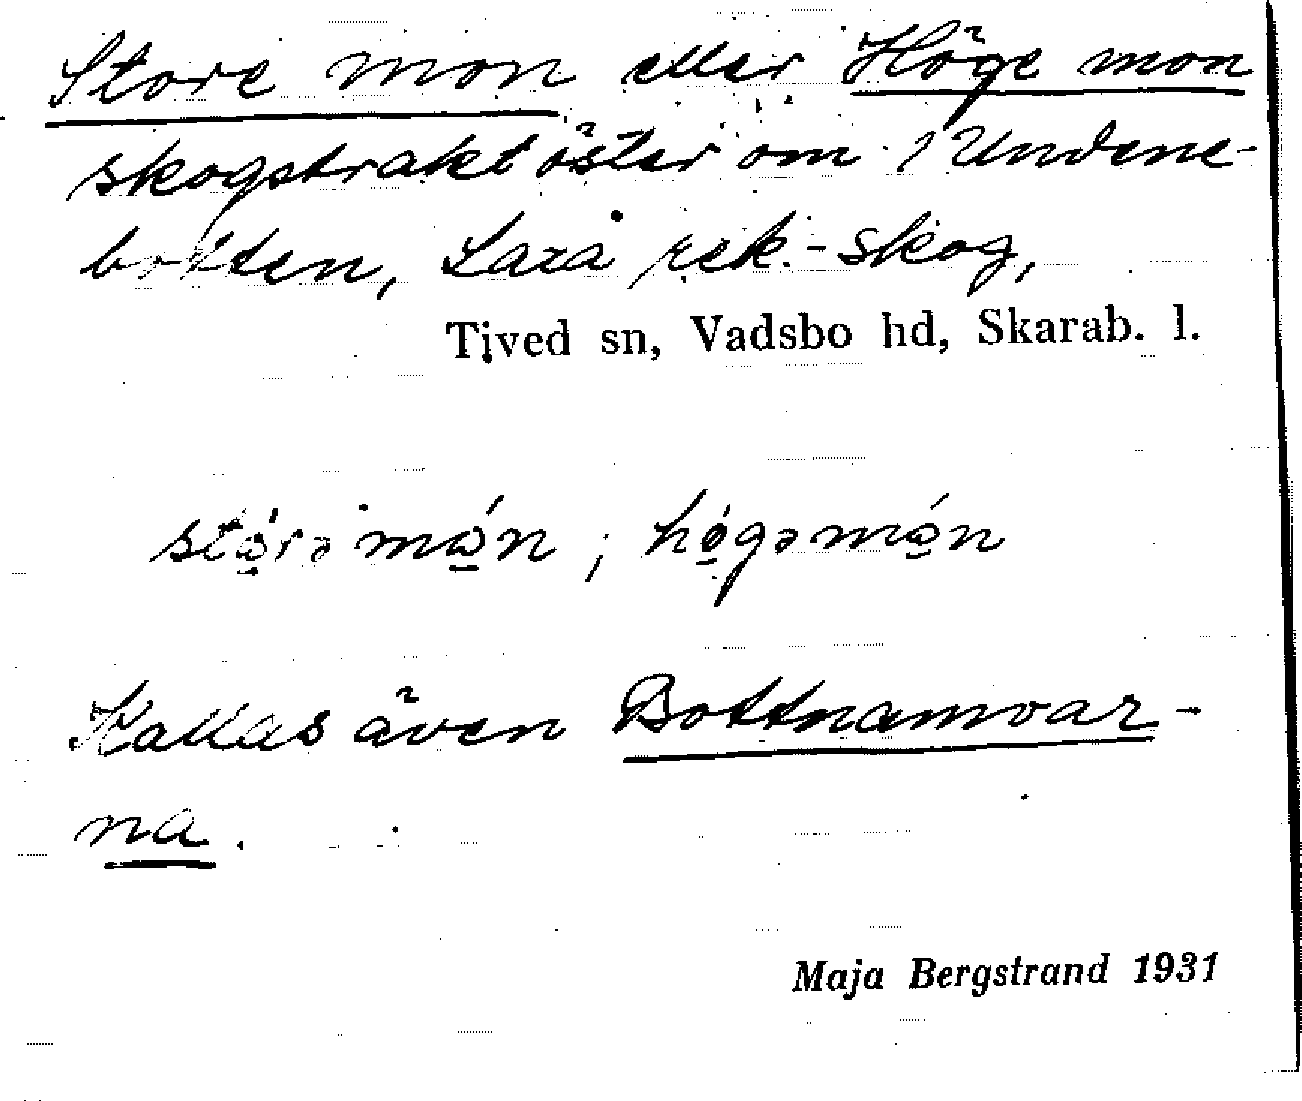 Store mon eller Höge mon
skogstrakt öster om Undene-
botten, Laxå rek.-skog,
Tived sn, Vadsbo hd, Skarab. l.
stó̱rə mó̱n ; hǿ̱gə mó̱n
Kallas även Bottnamoar-
na.
Maja Bergstrand 1931